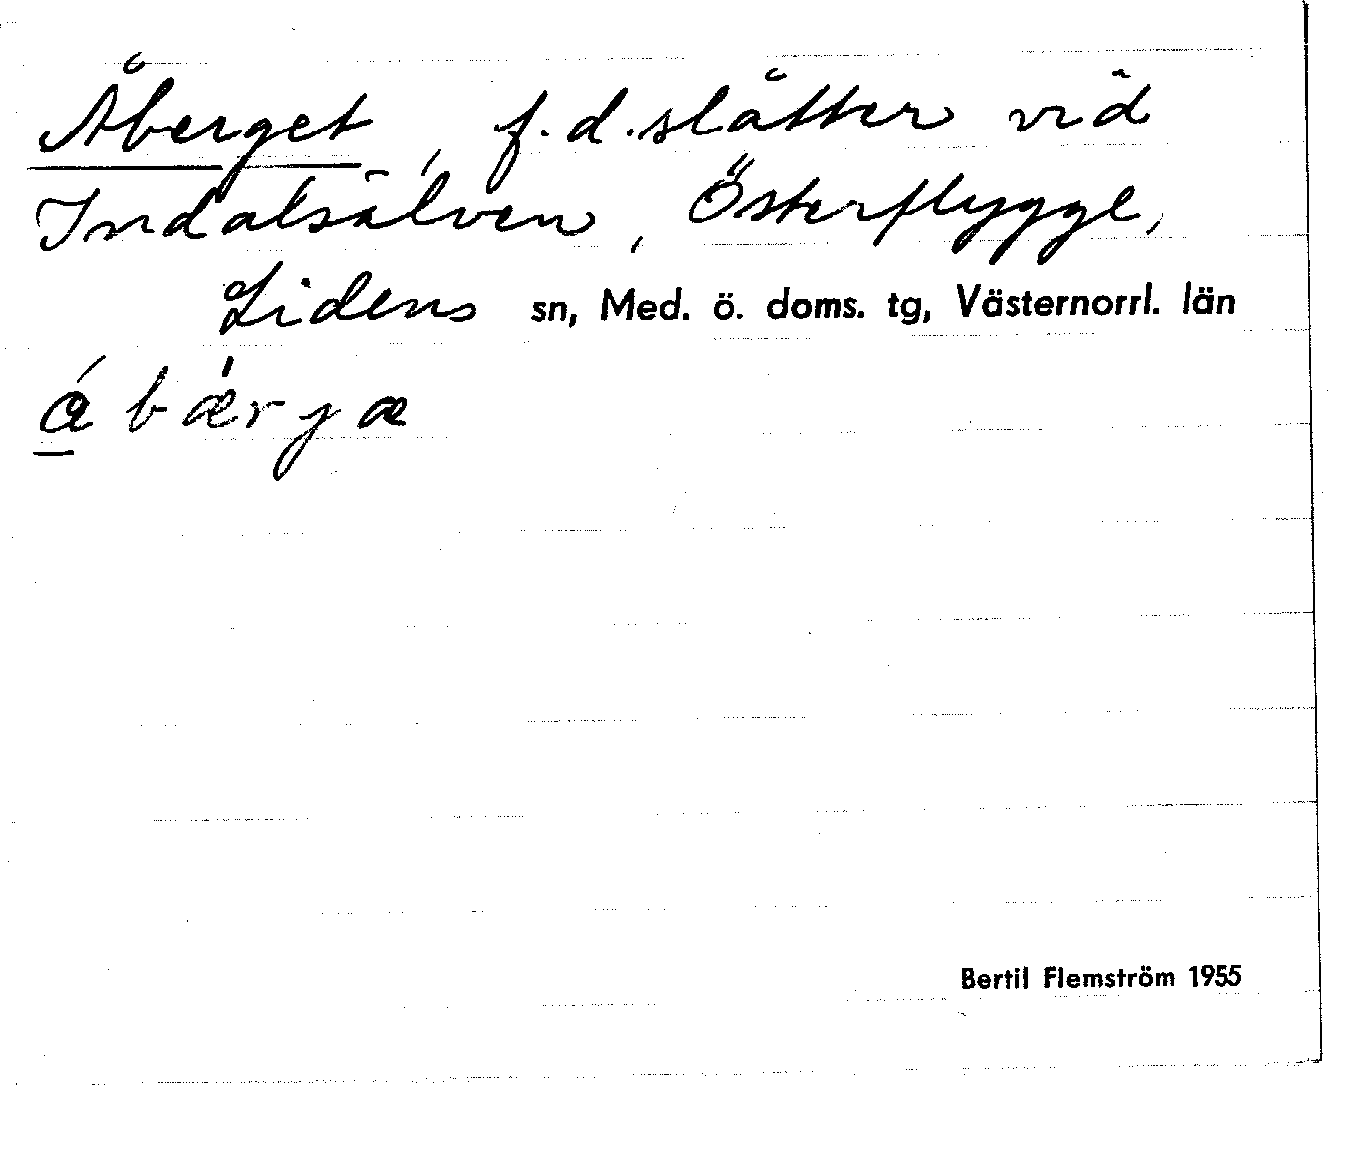 Åberget, f.d. slåtter vid
Indalsälven, Österflygge,
Lidens sn, Med. ö. doms. tg, Västernorrl. län
á bǽrjæ
Bertil Flemström 1955